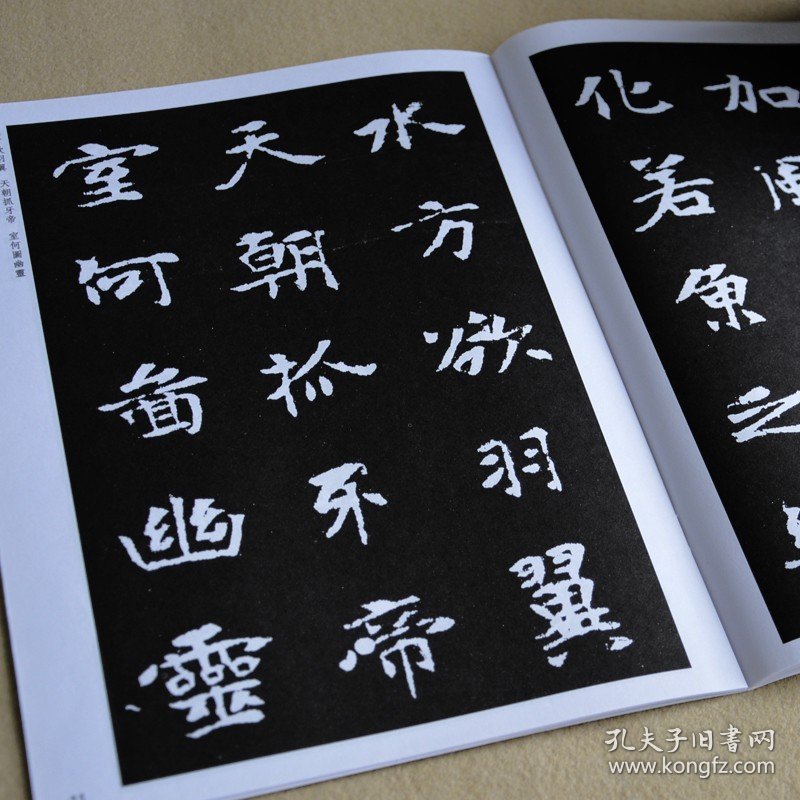 加
化若魚之
水方欲羽翼
天朝抓牙帝
室何啚幽靈
羽翼 天朝抓牙帝 室何圖幽靈
孔夫子旧书网
www.kongfz.com